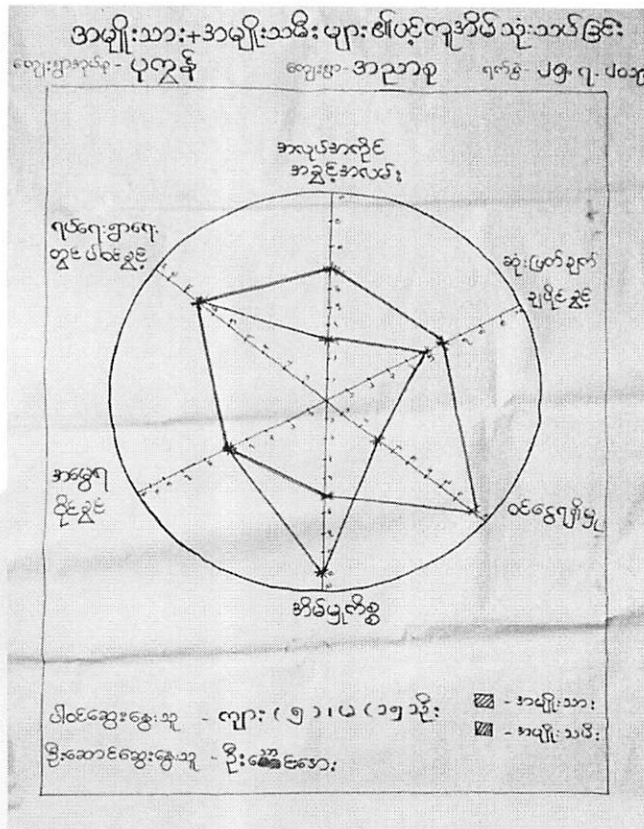 အမျိုးသား+အမျိုးသမီးများ၏ပင့်ကူအိမ်သုံးသပ်ခြင်း
ကျေးရွာအုပ်စု - ပုကွန် ကျေးရွာ - အညာစု ရက်စွဲ - ၂၅.၇.၂၀၁၃
အလုပ်အကိုင်
အခွင့်အလမ်း
ရပ်ရေးရွာရေး
တွင်ပါဝင်ခွင့်
ဆုံးဖြတ်ချက်
ချပိုင်ခွင့်
အမွေရ
ပိုင်ခွင့်
ဝင်ငွေရရှိမှု
အိမ်မှုကိစ္စ
ပါဝင်ဆွေးနွေးသူ - ကျား (၅) ၊ မ (၁၅) သိုး
ဦးဆောင်ဆွေးနွေးသူ - ဦး
- အမျိုးသား
- အမျိုးသမီး